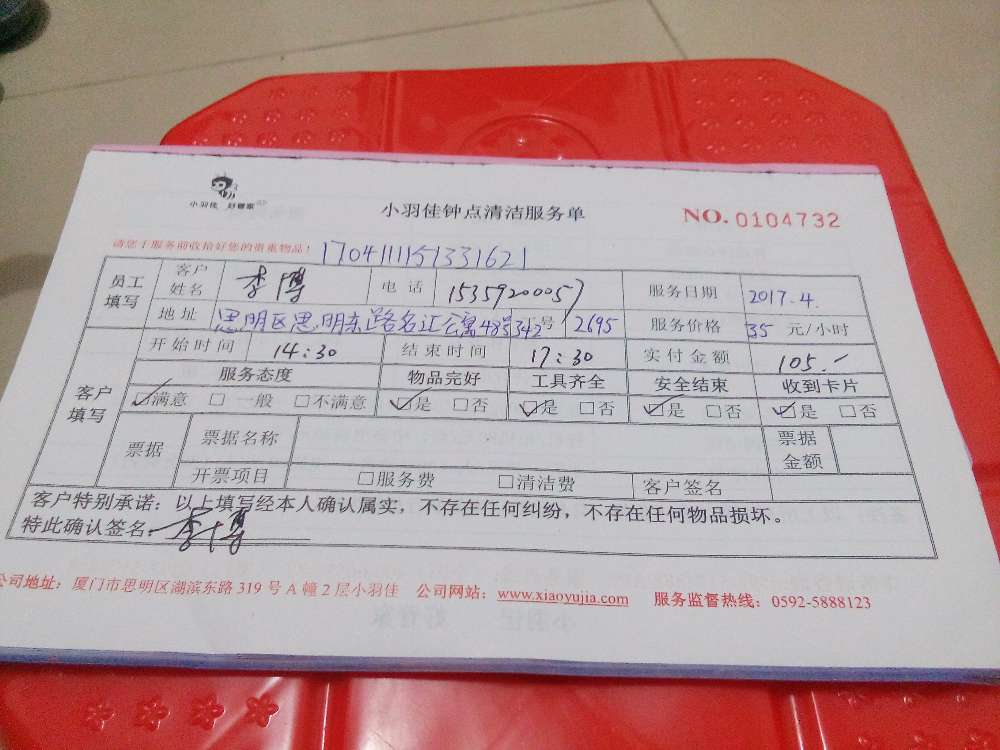 小羽佳 好管家
小羽佳钟点清洁服务单
NO. 0104732
请您于服务前收拾好您的贵重物品！
1704111151331621
员工填写 客户姓名 李博 电话 15359200057 服务日期 2017.4.
地址 思明区思明东路名汇公寓48号342号 2695 服务价格 35 元/小时
客户填写 开始时间 14:30 结束时间 17:30 实付金额 105.-
服务态度 物品完好 工具齐全 安全结束 收到卡片
☑满意 □一般 □不满意 ☑是 □否 ☑是 □否 ☑是 □否 ☑是 □否
票据 票据名称 票据金额
开票项目 □服务费 □清洁费 客户签名
客户特别承诺：以上填写经本人确认属实，不存在任何纠纷，不存在任何物品损坏。
特此确认签名： 李博
公司地址：厦门市思明区湖滨东路 319 号 A 幢 2 层小羽佳 公司网站：www.xiaoyujia.com 服务监督热线：0592-5888123